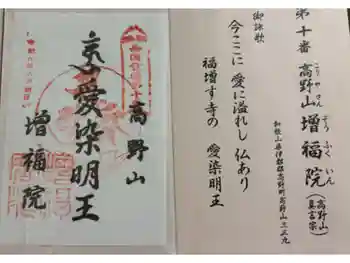 高野山
愛染明王
増福院
第十番 高野山 増福院 (高野山真言宗)
こうやさん ぞうふくいん
和歌山県伊都郡高野町高野山三三九
御詠歌
今ここに 愛に溢れし 仏あり
福増す寺の 愛染明王